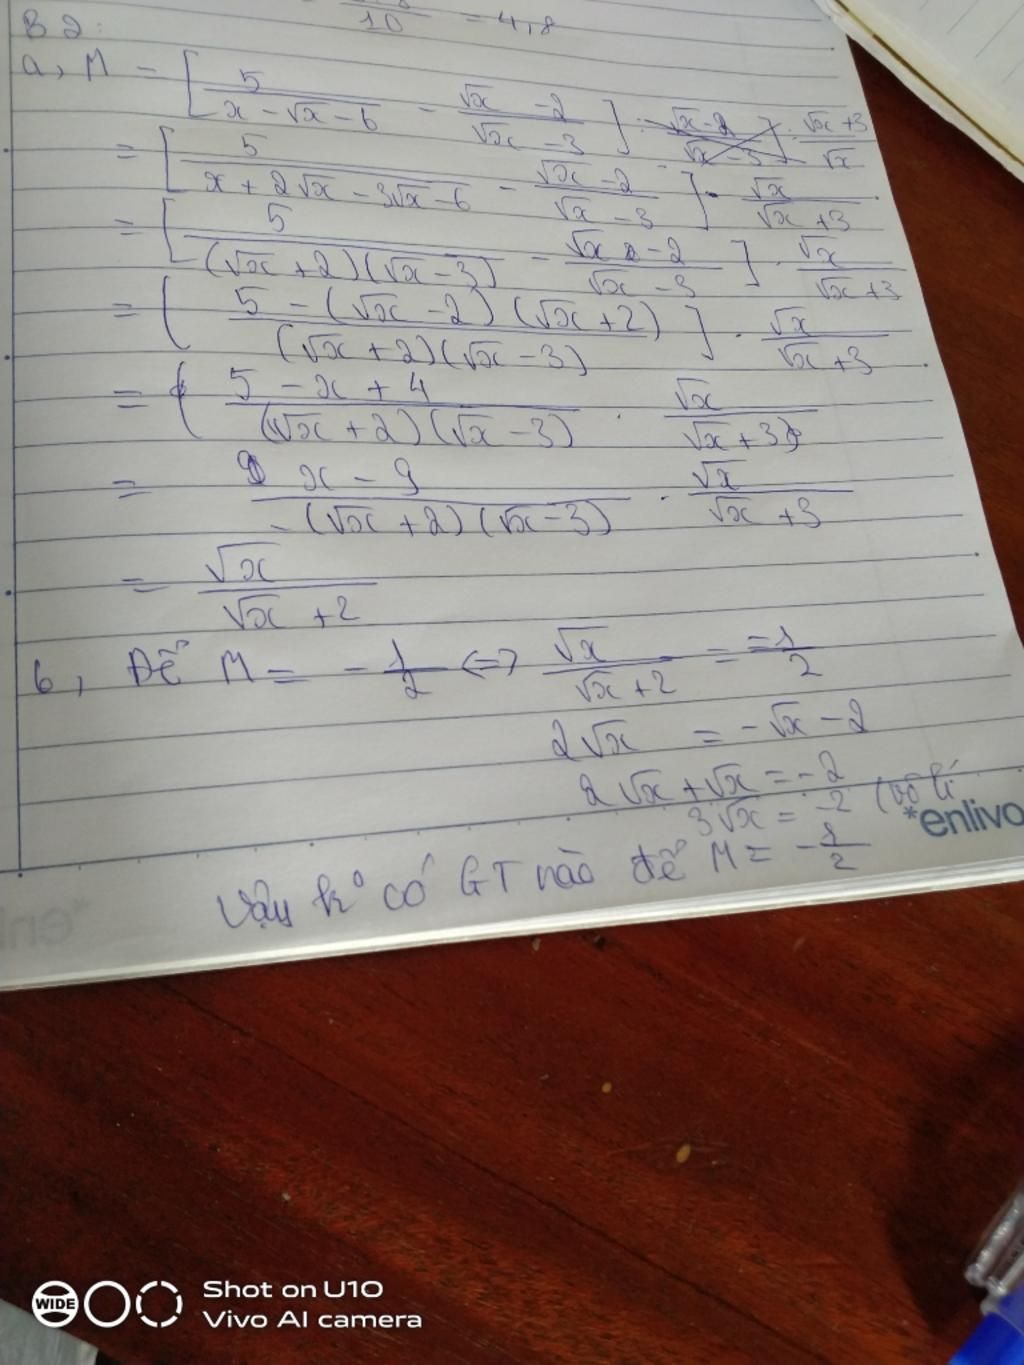 B2:
10 = 4,8
a, M = [5/(x - √x - 6) - (√x - 2)/(√x - 3)] : (√x + 3)/√x
= [5/(x + 2√x - 3√x - 6) - (√x - 2)/(√x - 3)] . √x/(√x + 3)
= [5/((√x + 2)(√x - 3)) - (√x - 2)/(√x - 3)] . √x/(√x + 3)
= [(5 - (√x - 2)(√x + 2))/((√x + 2)(√x - 3))] . √x/(√x + 3)
= ((5 - x + 4)/((√x + 2)(√x - 3)) . √x/(√x + 3)
= (x - 9)/(-(√x + 2)(√x - 3)) . √x/(√x + 3)
= √x/(√x + 2)
b, Để M = -1/2 <=> √x/(√x + 2) = -1/2
2√x = -√x - 2
2√x + √x = -2
3√x = -2 (vô lí
*enlivo
Vậy kº có GT nào để M = -1/2
WIDE
Shot on U10
Vivo AI camera